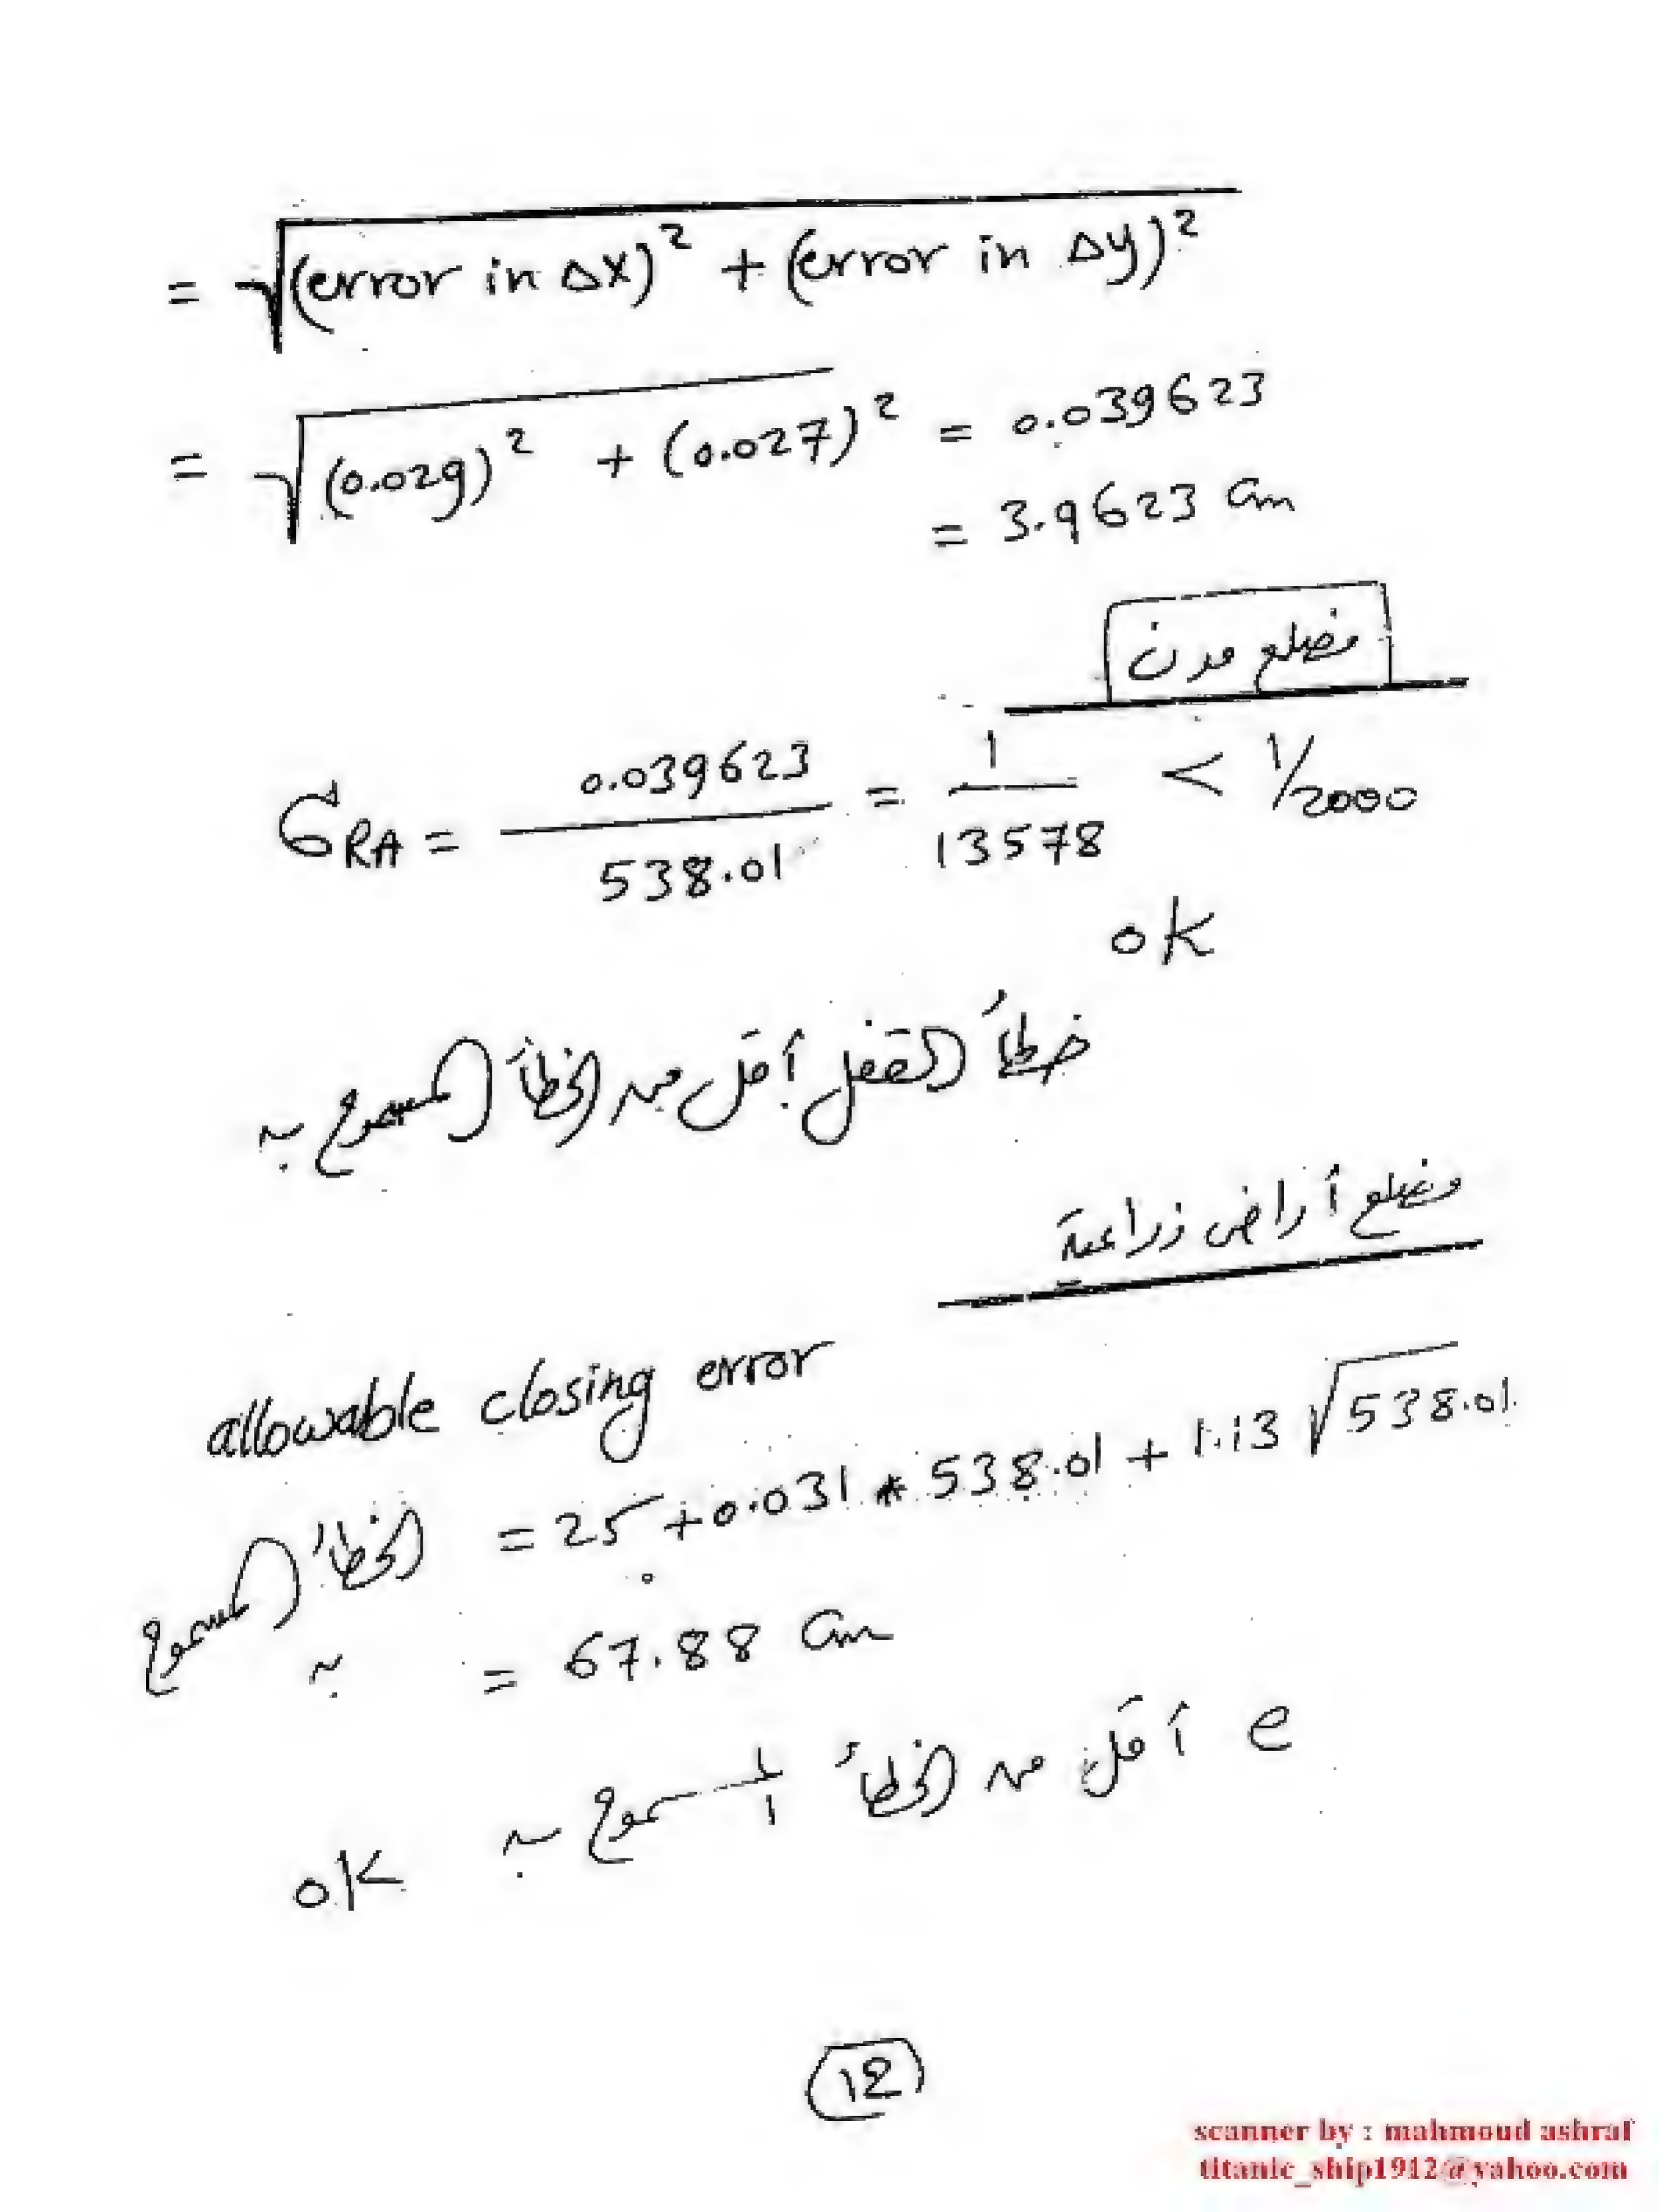 = √(error in Δx)² + (error in Δy)²
= √(0.029)² + (0.027)² = 0.039623
= 3.9623 cm
مضلع مدن
σRA = 0.039623 / 538.01 = 1 / 13578 < 1/2000
ok
خطأ القفل أقل من الخطأ المسموح به
مضلع أراضى زراعية
allowable closing error
الخطأ المسموح به = 25 + 0.031 * 538.01 + 1.13 √538.01
= 67.88 cm
e أقل من الخطأ المسموح به ok
(12)
scanner by : mahmoud ashraf
titanic_ship1912@yahoo.com